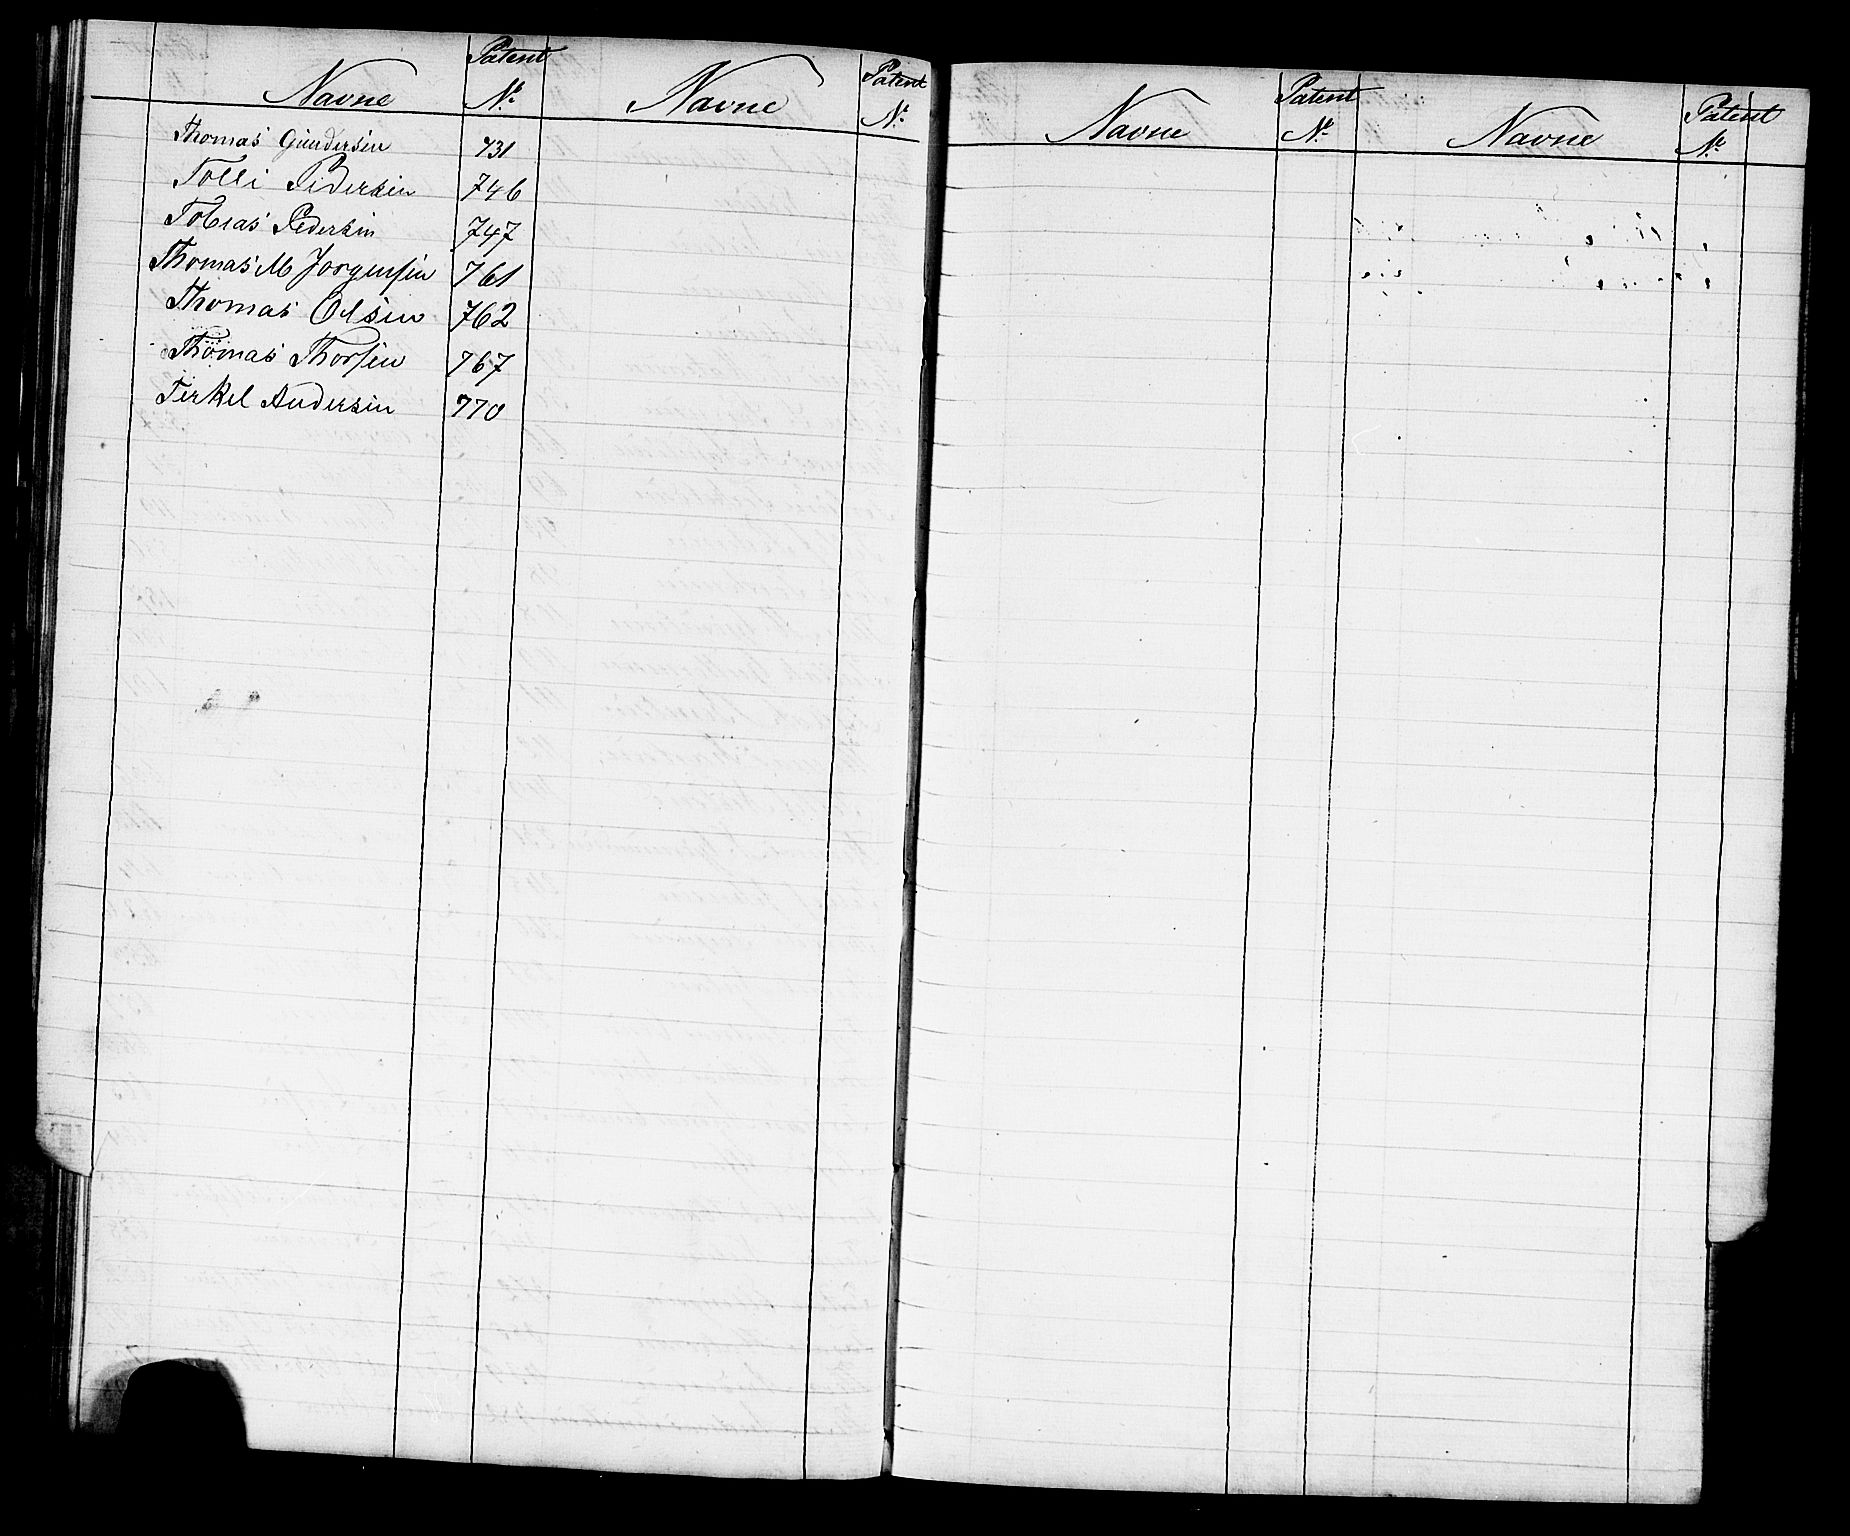 Navne Patent Nr. Navne Patent Nr. Navne Patent Nr. Navne Patent Nr.
Thomas Gundersen 731
Tolli Pedersen 746
Tobias Pedersen 747
Thomas M Jorgensen 761
Thomas Olsen 762
Thomas Thorsen 767
Terkel Andersen 770